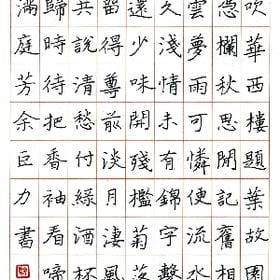 吹華西樓題葉故園
憑欄秋思閒記舊相
雲夢雨可憐便流水
久淺情未有錦字繫
還少味開殘檻菊落
留得尊前淡月淒風
共說清愁付綠酒杯
歸時待把香袖看啼
滿庭芳余巨力書